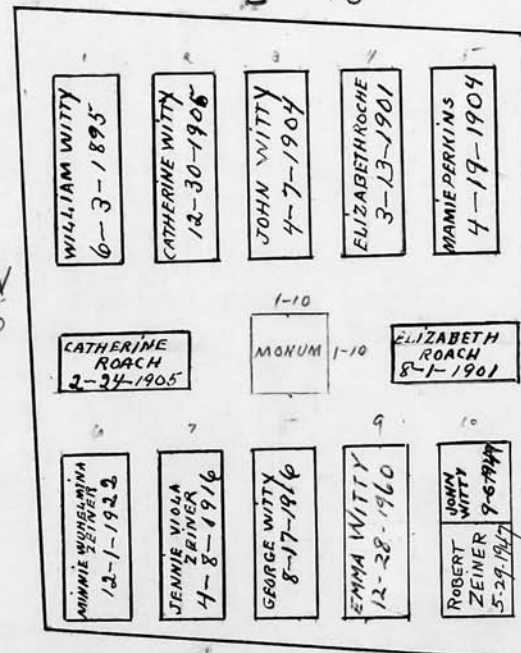 1
2
3
4
5
WILLIAM WITTY
6-3-1895
CATHERINE WITTY
12-30-1905
JOHN WITTY
4-7-1904
ELIZABETH ROCHE
3-13-1901
MAMIE PERKINS
4-19-1904
CATHERINE
ROACH
2-24-1905
1-10
MONUM
1-10
ELIZABETH
ROACH
8-1-1901
6
7
9
10
MINNIE WUHELMINA
ZEINER
12-1-1922
JENNIE VIOLA
ZEINER
4-8-1916
GEORGE WITTY
8-17-1916
EMMA WITTY
12-28-1960
JOHN
WITTY
ROBERT
ZEINER
5-29-1947